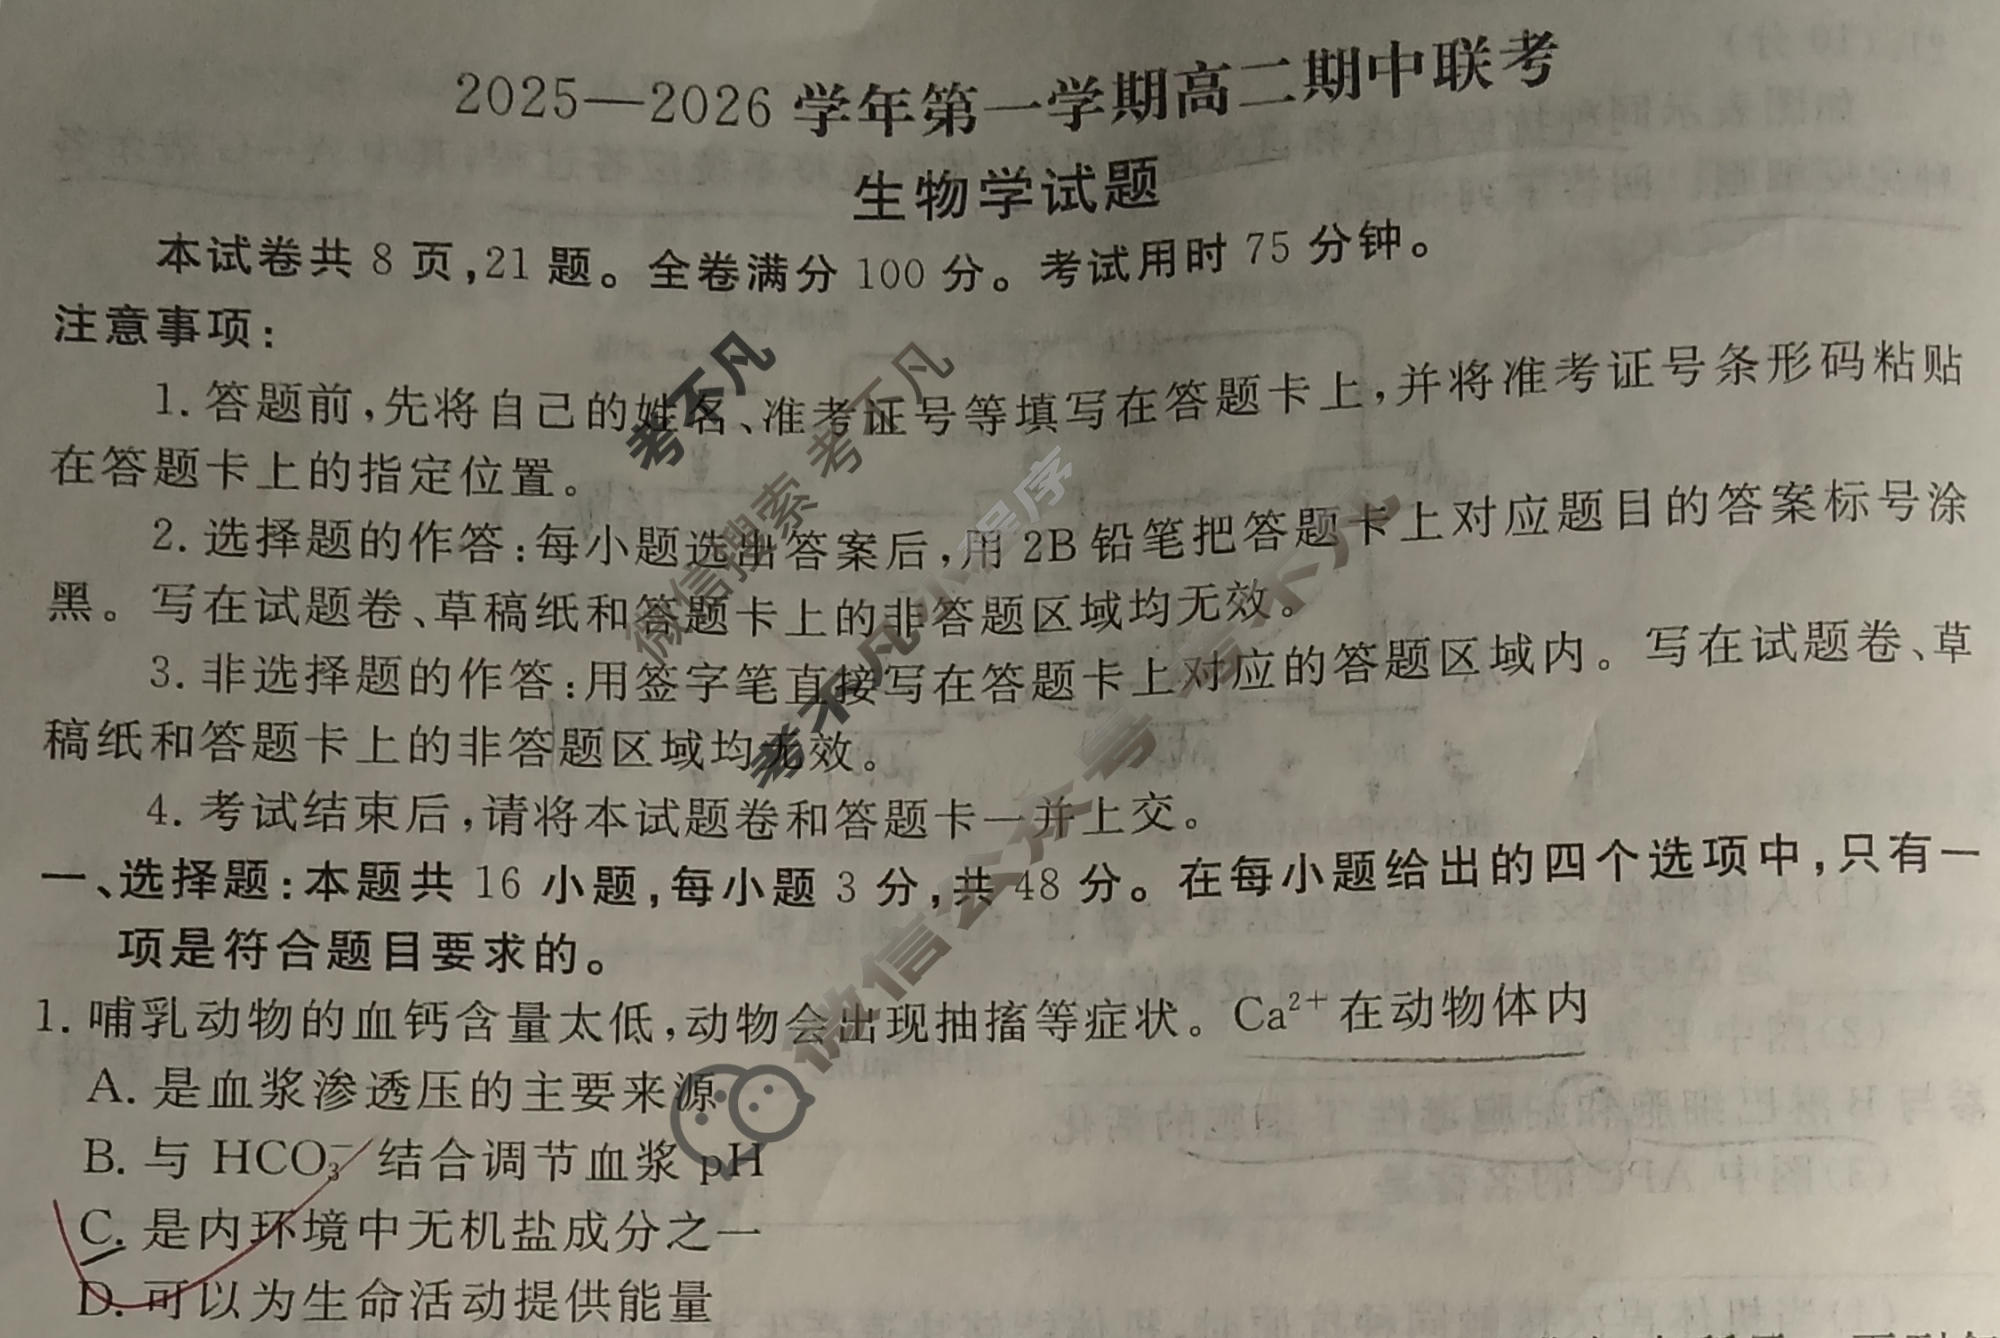 2025—2026 学年第一学期高二期中联考
生物学试题
本试卷共 8 页,21 题。全卷满分 100 分。考试用时 75 分钟。
注意事项:
1. 答题前,先将自己的姓名、准考证号等填写在答题卡上,并将准考证号条形码粘贴
在答题卡上的指定位置。
2. 选择题的作答:每小题选出答案后,用 2B 铅笔把答题卡上对应题目的答案标号涂
黑。写在试题卷、草稿纸和答题卡上的非答题区域均无效。
3. 非选择题的作答:用签字笔直接写在答题卡上对应的答题区域内。写在试题卷、草
稿纸和答题卡上的非答题区域均无效。
4. 考试结束后,请将本试题卷和答题卡一并上交。
一、选择题:本题共 16 小题,每小题 3 分,共 48 分。在每小题给出的四个选项中,只有一
项是符合题目要求的。
1. 哺乳动物的血钙含量太低,动物会出现抽搐等症状。Ca²⁺在动物体内
A. 是血浆渗透压的主要来源
B. 与 HCO₃⁻ 结合调节血浆 pH
C. 是内环境中无机盐成分之一
D. 可以为生命活动提供能量
考不凡
微信搜索 考不凡
考不凡小程序
微信公众号 考不凡